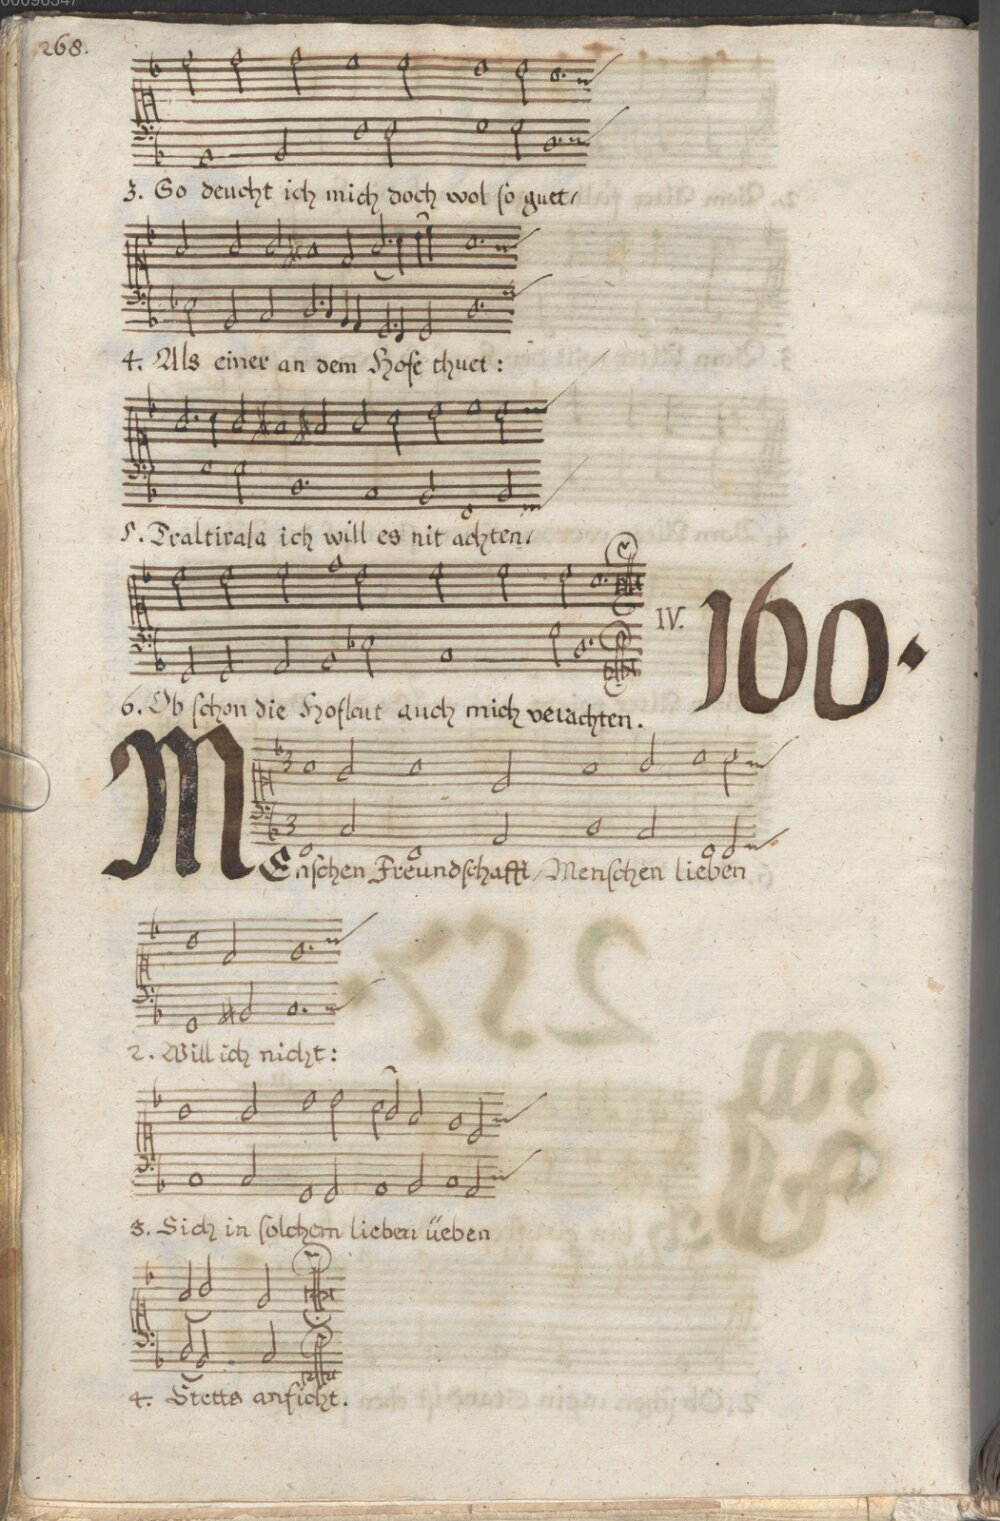 268.
3. So deucht ich mich doch wol so guet/
4. Als einer an dem Hofe thuet:
5. Traltirala ich will es nit achten/
6. Ob schon die Hofleut auch mich verachten.
IV. 160.
MEnschen Freundschafft/Menschen lieben
2. Will ich nicht:
3. Sich in solchem lieben üeben
4. Stetts anficht.